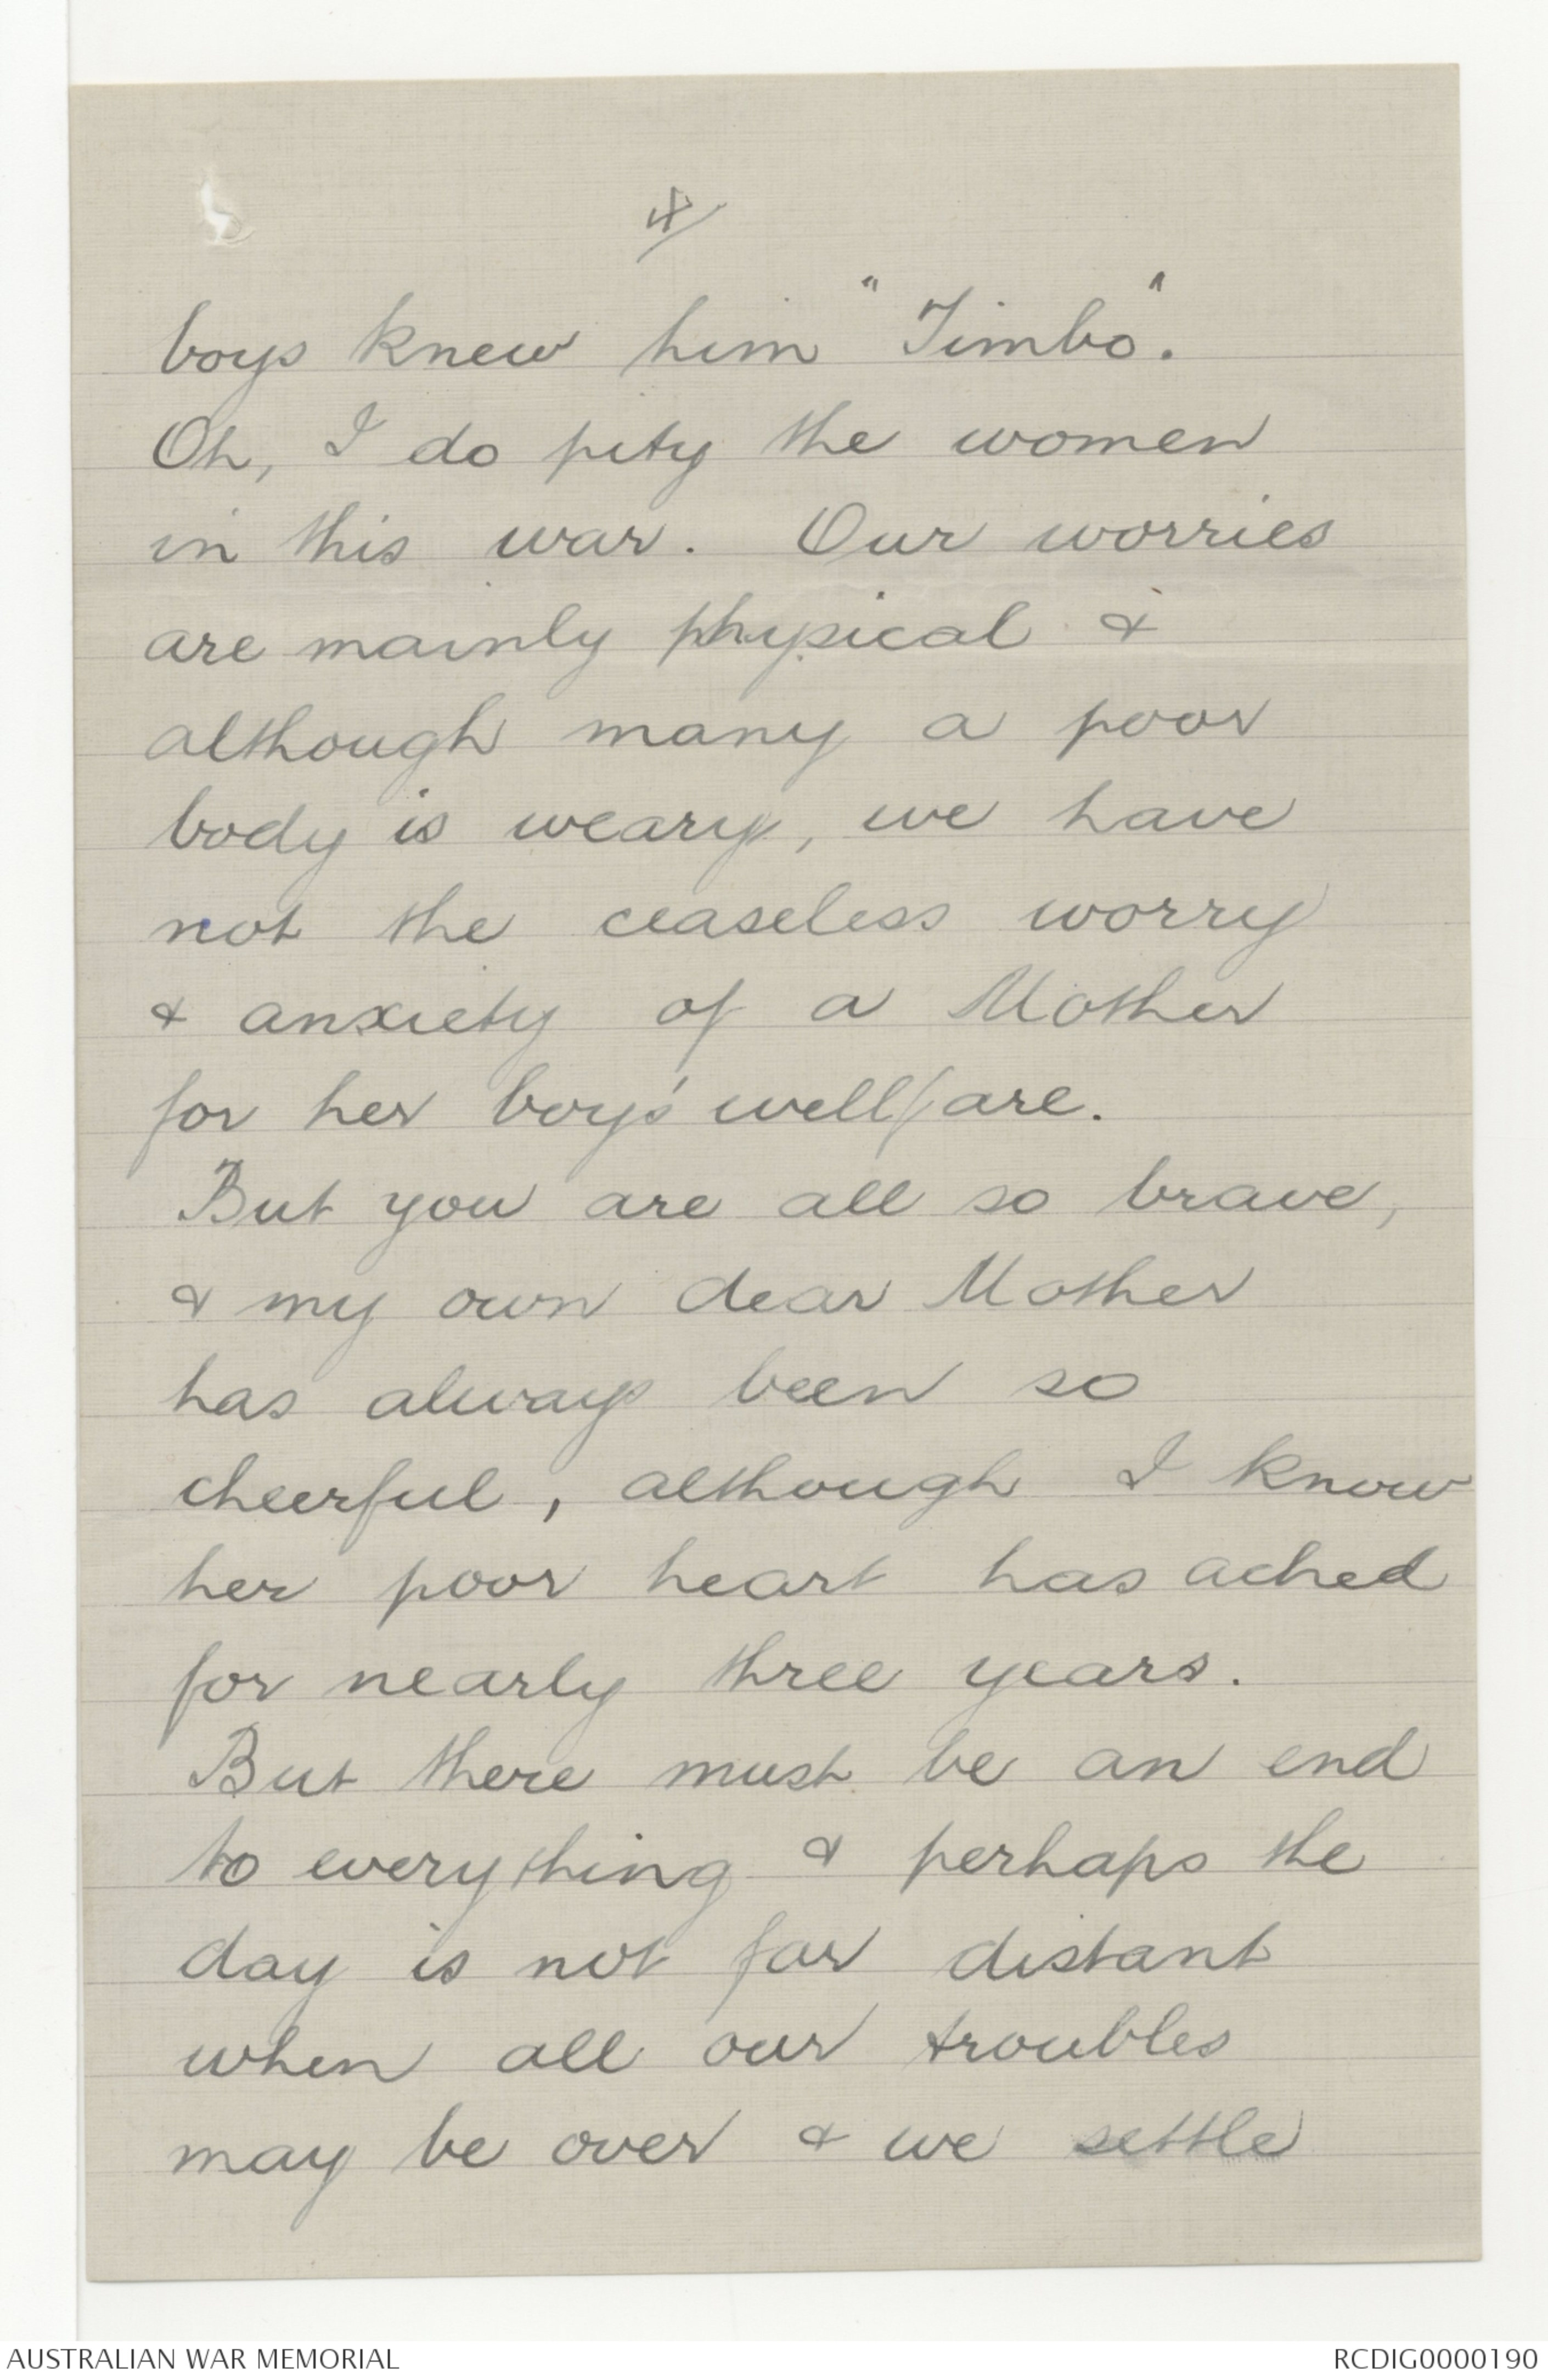 4/
boys knew him "Jimbo".
Oh, I do pity the women
in this war. Our worries
are mainly physical &
although many a poor
body is weary, we have
not the ceaseless worry
& anxiety of a Mother
for her boy's wellfare.
But you are all so brave,
& my own dear Mother
has always been so
cheerful, although I know
her poor heart has ached
for nearly three years.
But there must be an end
to everything & perhaps the
day is not far distant
when all our troubles
may be over & we settle
AUSTRALIAN WAR MEMORIAL
RCDIG0000190